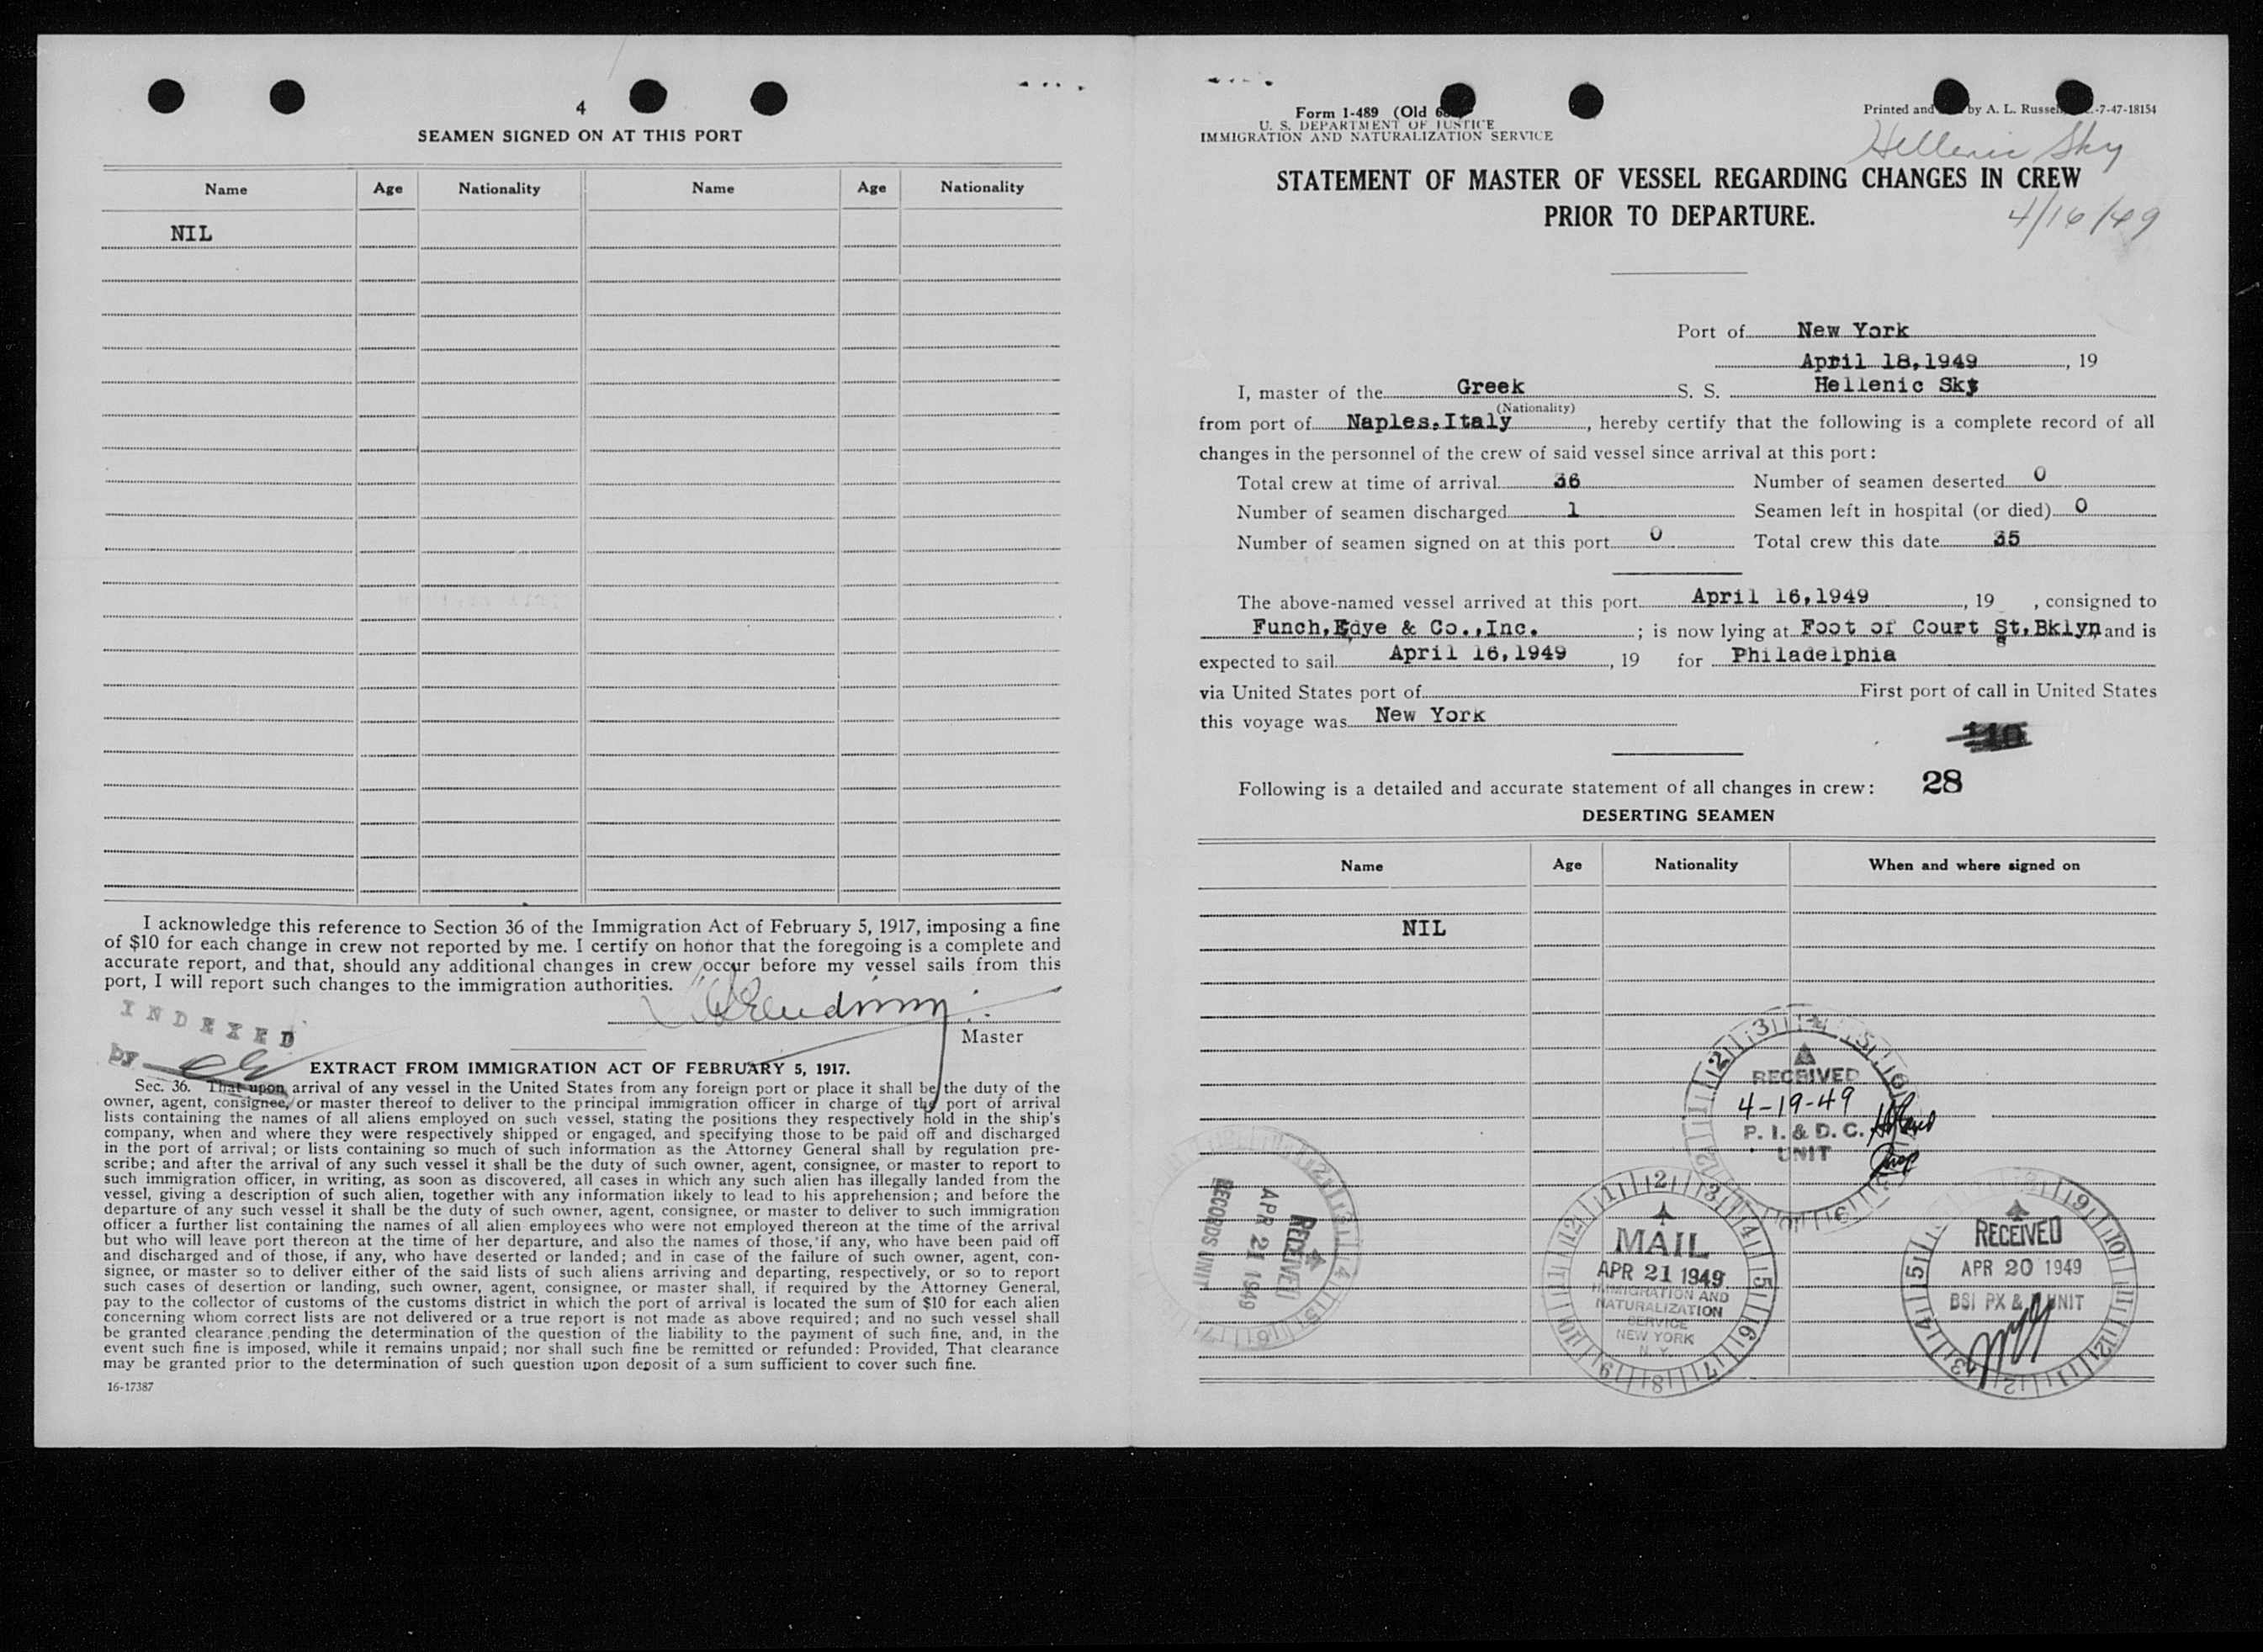 4
SEAMEN SIGNED ON AT THIS PORT
Name Age Nationality Name Age Nationality
NIL
I acknowledge this reference to Section 36 of the Immigration Act of February 5, 1917, imposing a fine
of $10 for each change in crew not reported by me. I certify on honor that the foregoing is a complete and
accurate report, and that, should any additional changes in crew occur before my vessel sails from this
port, I will report such changes to the immigration authorities.
Master
INDEXED
by
EXTRACT FROM IMMIGRATION ACT OF FEBRUARY 5, 1917.
Sec. 36. That upon arrival of any vessel in the United States from any foreign port or place it shall be the duty of the
owner, agent, consignee, or master thereof to deliver to the principal immigration officer in charge of the port of arrival
lists containing the names of all aliens employed on such vessel, stating the positions they respectively hold in the ship's
company, when and where they were respectively shipped or engaged, and specifying those to be paid off and discharged
in the port of arrival; or lists containing so much of such information as the Attorney General shall by regulation pre-
scribe; and after the arrival of any such vessel it shall be the duty of such owner, agent, consignee, or master to report to
such immigration officer, in writing, as soon as discovered, all cases in which any such alien has illegally landed from the
vessel, giving a description of such alien, together with any information likely to lead to his apprehension; and before the
departure of any such vessel it shall be the duty of such owner, agent, consignee, or master to deliver to such immigration
officer a further list containing the names of all alien employees who were not employed thereon at the time of the arrival
but who will leave port thereon at the time of her departure, and also the names of those, if any, who have been paid off
and discharged and of those, if any, who have deserted or landed; and in case of the failure of such owner, agent, con-
signee, or master so to deliver either of the said lists of such aliens arriving and departing, respectively, or so to report
such cases of desertion or landing, such owner, agent, consignee, or master shall, if required by the Attorney General,
pay to the collector of customs of the customs district in which the port of arrival is located the sum of $10 for each alien
concerning whom correct lists are not delivered or a true report is not made as above required; and no such vessel shall
be granted clearance pending the determination of the question of the liability to the payment of such fine, and, in the
event such fine is imposed, while it remains unpaid; nor shall such fine be remitted or refunded: Provided, That clearance
may be granted prior to the determination of such question upon deposit of a sum sufficient to cover such fine.
16-17387
Form 1-489 (Old
U. S. DEPARTMENT OF JUSTICE
IMMIGRATION AND NATURALIZATION SERVICE
Printed and by A. L. Russell -7-47-18154
Hellenic Sky
STATEMENT OF MASTER OF VESSEL REGARDING CHANGES IN CREW
PRIOR TO DEPARTURE.
4/16/49
Port of New York
April 18, 1949, 19
I, master of the Greek S. S. Hellenic Sky
(Nationality)
from port of Naples, Italy, hereby certify that the following is a complete record of all
changes in the personnel of the crew of said vessel since arrival at this port:
Total crew at time of arrival 36 Number of seamen deserted 0
Number of seamen discharged 1 Seamen left in hospital (or died) 0
Number of seamen signed on at this port 0 Total crew this date 35
The above-named vessel arrived at this port April 16, 1949, 19 , consigned to
Funch, Edye & Co., Inc.; is now lying at Foot of Court St. Bklyn and is
expected to sail April 16, 1949, 19 for Philadelphia
via United States port of First port of call in United States
this voyage was New York
28
Following is a detailed and accurate statement of all changes in crew:
DESERTING SEAMEN
Name Age Nationality When and where signed on
NIL
RECEIVED
4-19-49
P. I. & D. C.
UNIT
RECEIVED
APR 21 1949
RECORDS UNIT
MAIL
APR 21 1949
IMMIGRATION AND
NATURALIZATION
SERVICE
NEW YORK
N. Y.
RECEIVED
APR 20 1949
BSI PX & UNIT